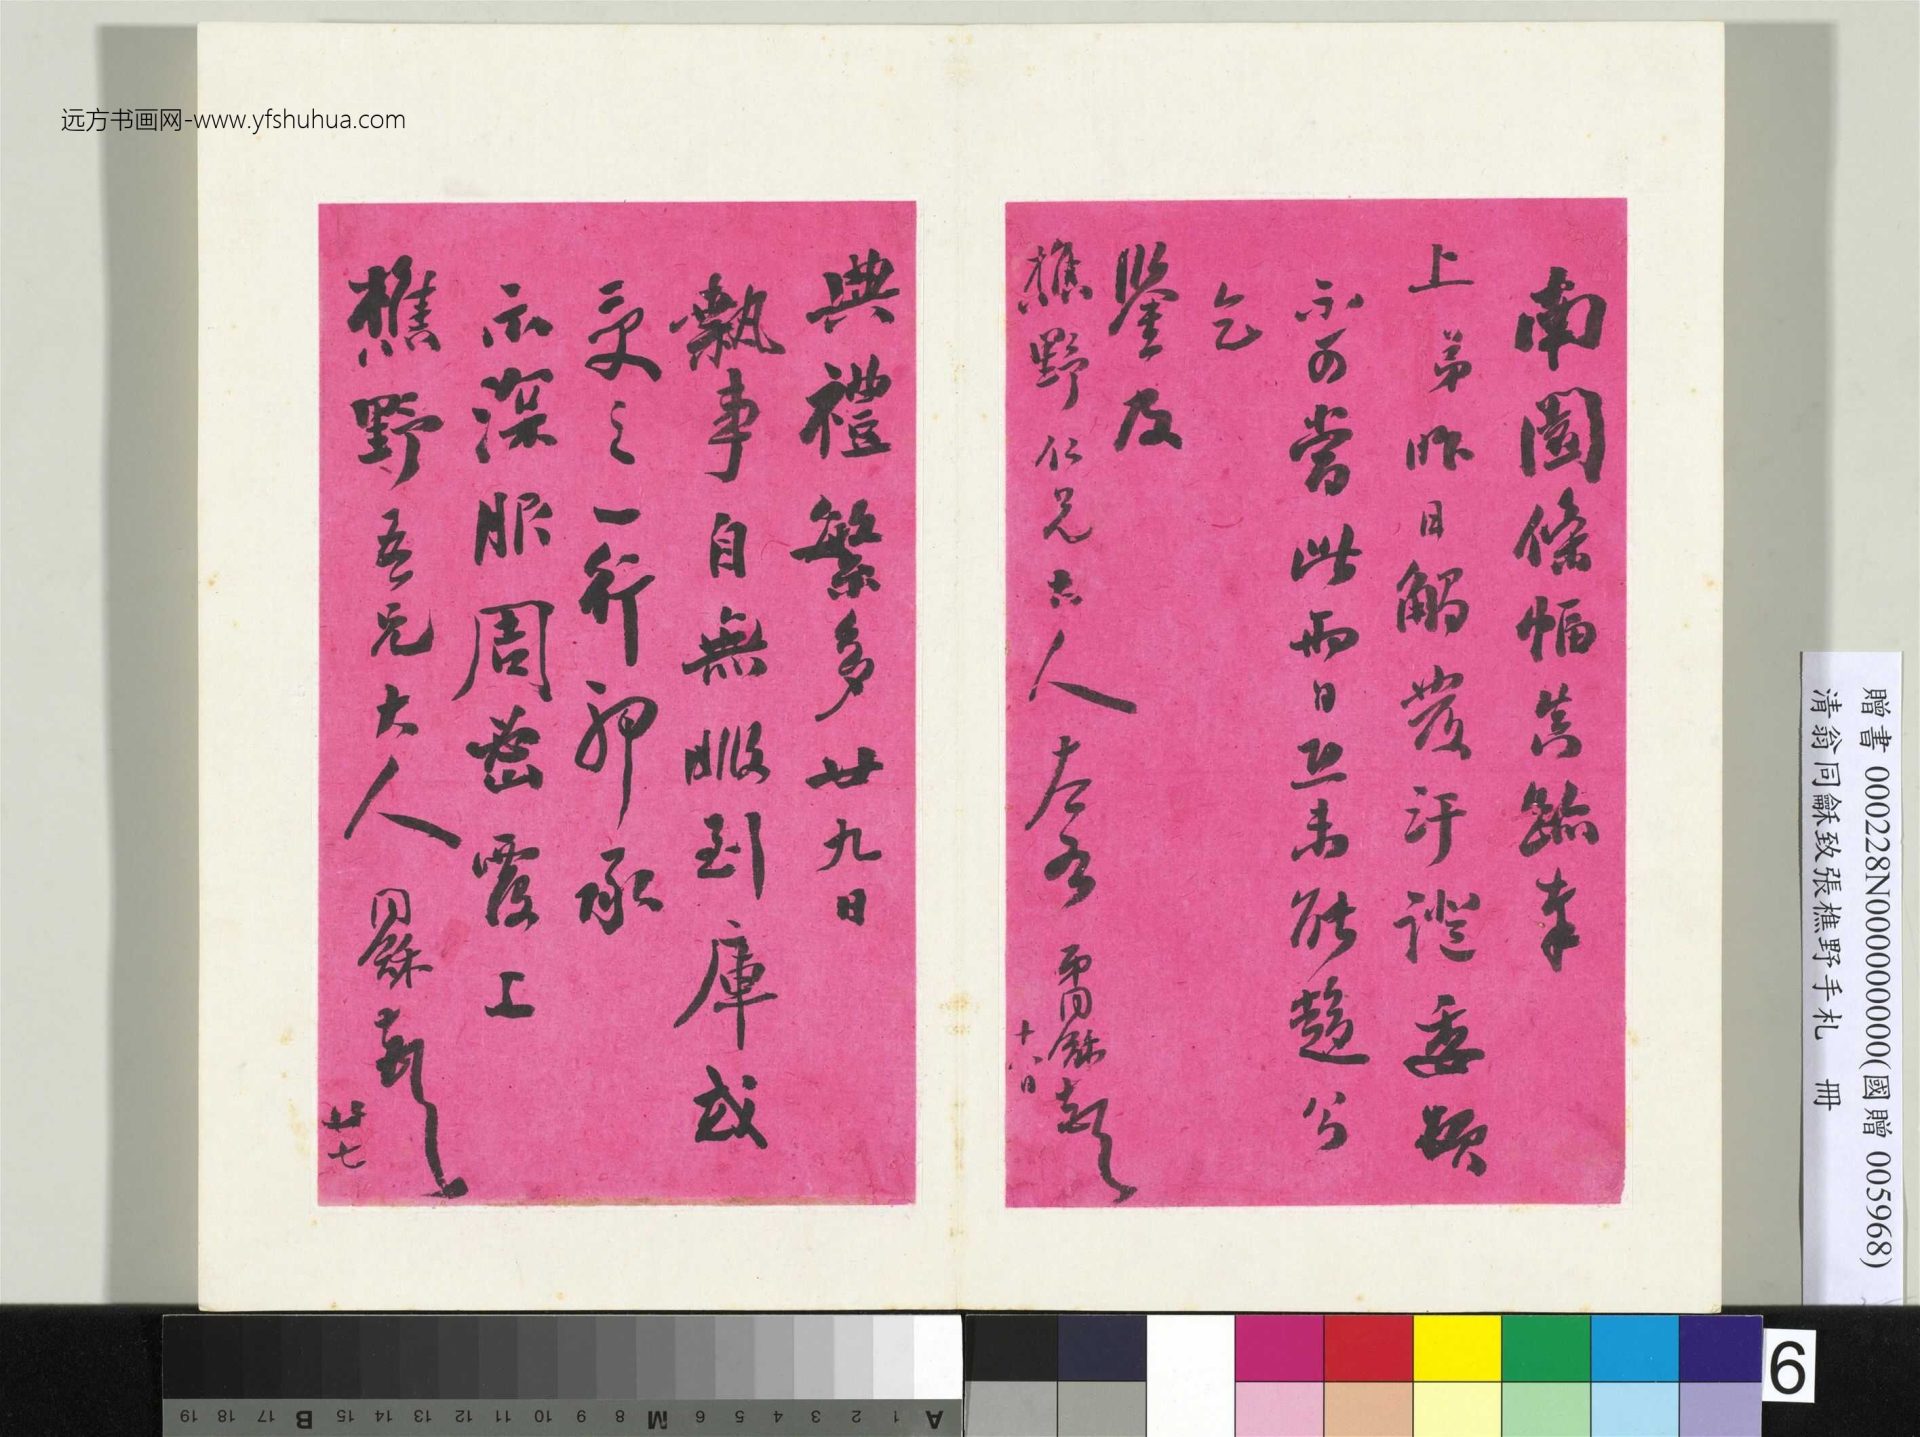 远方书画网-www.yfshuhua.com
南園條幅真跡奉
上弟昨日觸發汗證委頓
不可當此兩日恐未能趨公
乞
鑒及
樵野仁兄大人左右 弟同龢頓首
十八日
典禮繁多廿九日
執事自無暇到庫或
更之一行耶承
示深服周密覆上
樵野吾兄大人 同龢頓首
廿七
贈書 000228N000000000(國贈 005968)
清翁同龢致張樵野手札 冊
A 1 2 3 4 5 6 M 8 9 10 11 12 13 14 15 B 17 18 19
6